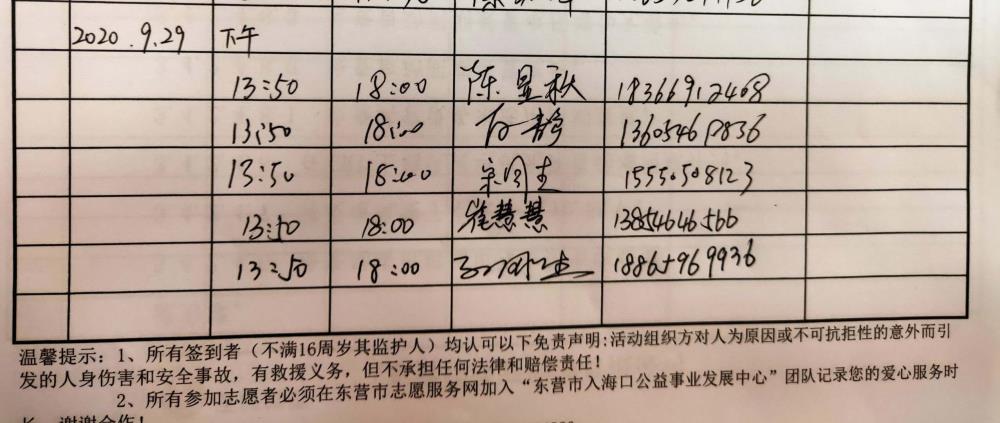 2020.9.29 下午
13:50 18:00 陈显秋 18366912408
13:50 18:00 白静 13605461836
13:50 18:00 15550508123
13:50 18:00 崔慧慧 13854646566
13:50 18:00 18865969936
温馨提示：1、所有签到者（不满16周岁其监护人）均认可以下免责声明:活动组织方对人为原因或不可抗拒性的意外而引
发的人身伤害和安全事故，有救援义务，但不承担任何法律和赔偿责任！
2、所有参加志愿者必须在东营市志愿服务网加入“东营市入海口公益事业发展中心”团队记录您的爱心服务时
长，谢谢合作！